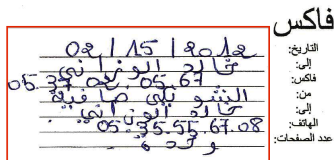 فاكس
التاريخ: 02 | 15 | 2012
إلى: خالد الوزاني
فاكس: 05.37.02.05.67
من: صافية
إلى: خالد الوزاني
الهاتف: 05.35.55.67.08
عدد الصفحات: وحدة